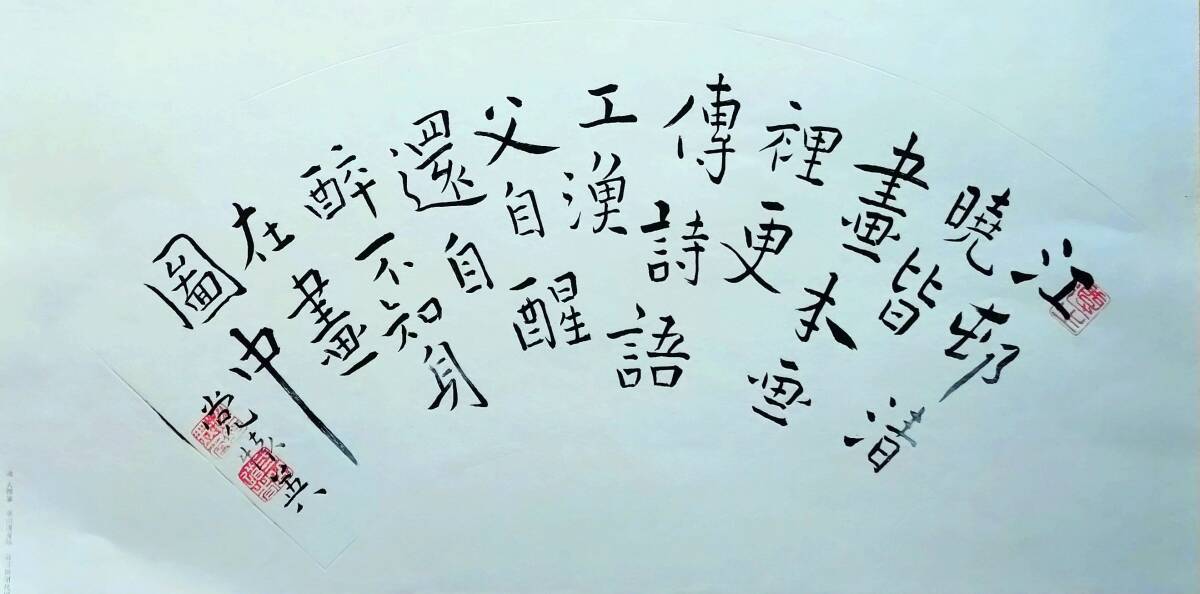 江邨清
曉皆
畫本畫
裡更
傳詩語
工漁
父自醒
還自
醉不知身
在畫
圖中
党
英